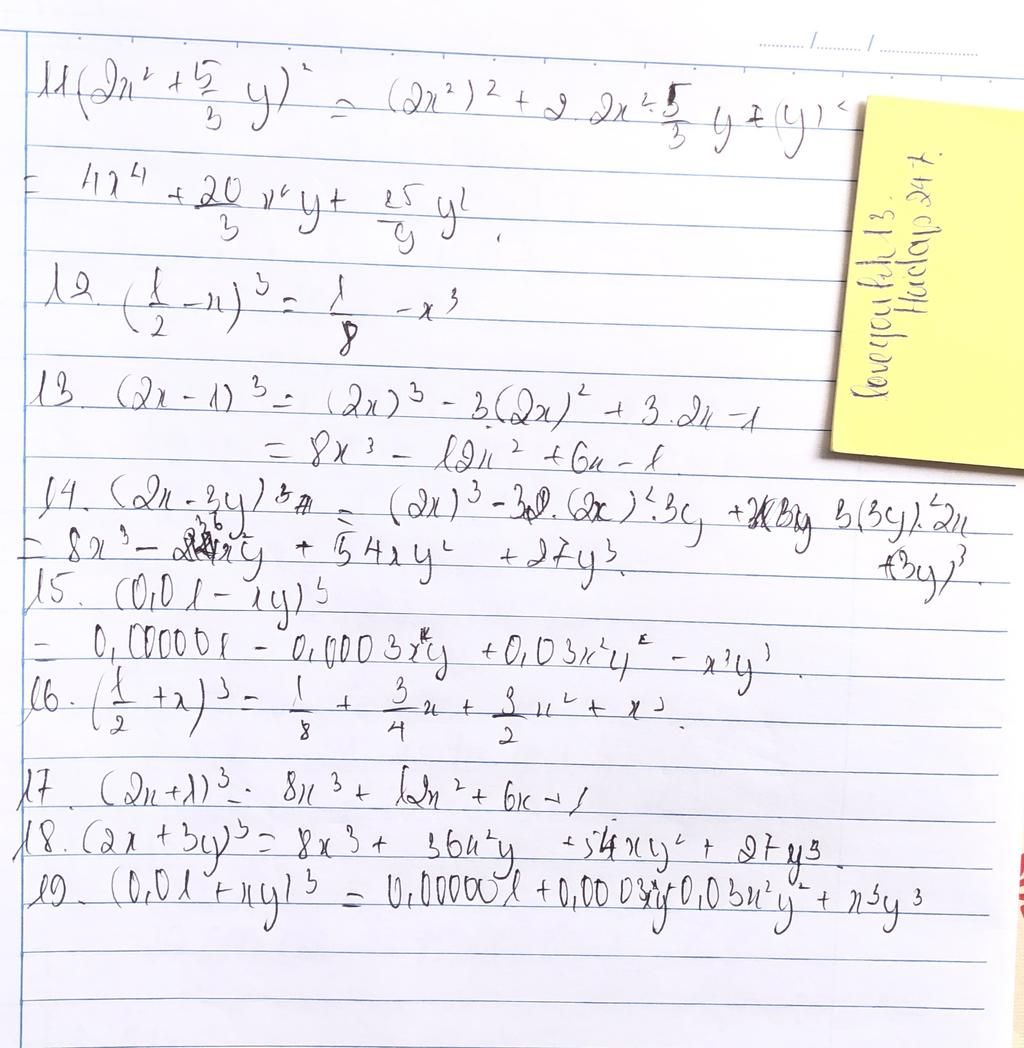 11 (2x² + 5/3 y)² = (2x²)² + 2. 2x². 5/3 y + (y)²
= 4x⁴ + 20/3 x²y + 25/9 y².
12. (1/2 - x)³ = 1/8 - x³
13. (2x - 1)³ = (2x)³ - 3.(2x)² + 3.2x - 1
= 8x³ - 12x² + 6x - 1
14. (2x - 3y)³ = (2x)³ - 3.(2x)².3y + 3(3y)².2x
+3y)³.
= 8x³ - 36x²y + 54xy² + 27y³.
15. (0,01 - xy)³
= 0,000001 - 0,0003xy + 0,03x²y² - x³y³.
16. (1/2 + x)³ = 1/8 + 3/4 x + 3/2 x² + x³.
17. (2x + 1)³ = 8x³ + 12x² + 6x + 1
18. (2x + 3y)³ = 8x³ + 36x²y + 54xy² + 27y³.
19. (0,01 + xy)³ = 0,000001 + 0,0003xy + 0,03x²y² + x³y³
Hoidap247.